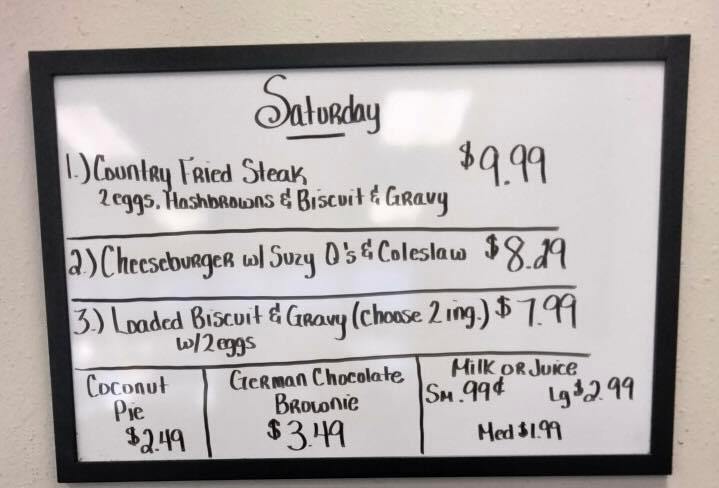 Saturday
1.) Country Fried Steak $9.99
2 eggs, Hashbrowns & Biscuit & Gravy
2.) Cheeseburger w/ Suzy Q's & Coleslaw $8.29
3.) Loaded Biscuit & Gravy (choose 2 ing.) $7.99
w/2 eggs
Coconut
Pie
$2.49
German Chocolate
Brownie
$3.49
Milk or Juice
Sm .99¢ Lg $2.99
Med $1.99